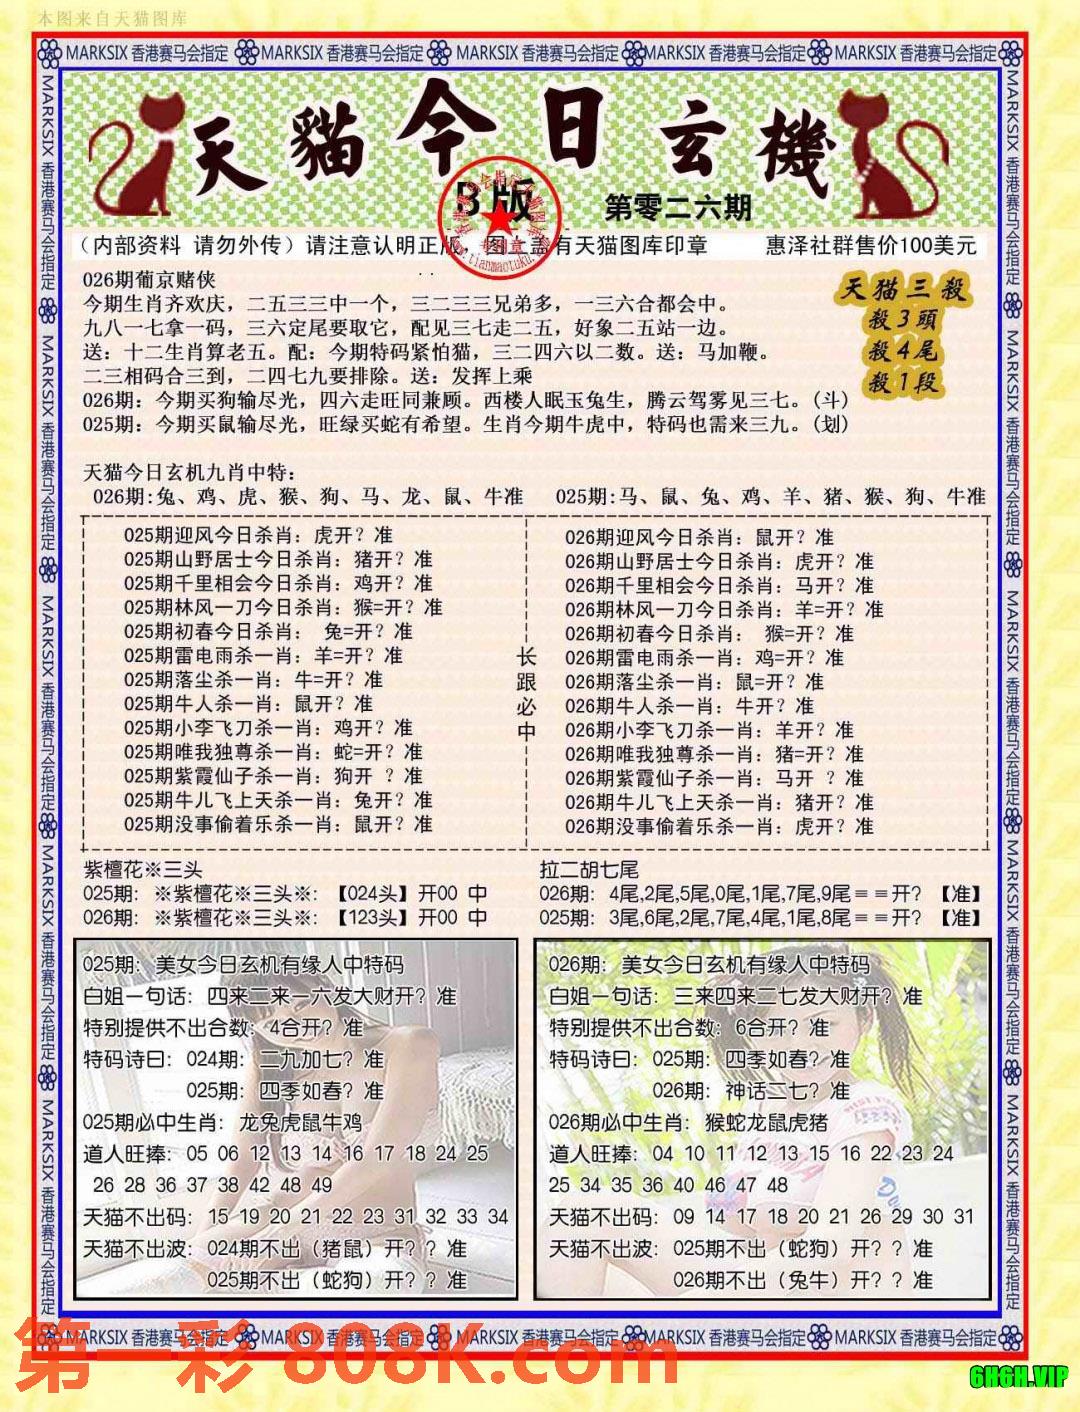 本图来自天猫图库
MARKSIX 香港赛马会指定 MARKSIX 香港赛马会指定 MARKSIX 香港赛马会指定 MARKSIX 香港赛马会指定 MARKSIX 香港赛马会指定
天貓今日玄機
B版
第零二六期
（内部资料 请勿外传）请注意认明正版，图上盖有天猫图库印章 惠泽社群售价100美元
www.tianmaotuku.com
专用章
026期葡京赌侠
今期生肖齐欢庆，二五三三中一个，三二三三兄弟多，一三六合都会中。
九八一七拿一码，三六定尾要取它，配见三七走二五，好象二五站一边。
送：十二生肖算老五。配：今期特码紧怕猫，三二四六以二数。送：马加鞭。
二三相码合三到，二四七九要排除。送：发挥上乘
026期：今期买狗输尽光，四六走旺同兼顾。西楼人眠玉兔生，腾云驾雾见三七。(斗)
025期：今期买鼠输尽光，旺绿买蛇有希望。生肖今期牛虎中，特码也需来三九。(划)
天猫三殺
殺3頭
殺4尾
殺1段
天猫今日玄机九肖中特：
026期:兔、鸡、虎、猴、狗、马、龙、鼠、牛准 025期:马、鼠、兔、鸡、羊、猪、猴、狗、牛准
025期迎风今日杀肖：虎开？准
025期山野居士今日杀肖：猪开？准
025期千里相会今日杀肖：鸡开？准
025期林风一刀今日杀肖：猴=开？准
025期初春今日杀肖： 兔=开？准
025期雷电雨杀一肖：羊=开？准
025期落尘杀一肖：牛=开？准
025期牛人杀一肖：鼠开？准
025期小李飞刀杀一肖：鸡开？准
025期唯我独尊杀一肖：蛇=开？准
025期紫霞仙子杀一肖：狗开 ？准
025期牛儿飞上天杀一肖：兔开？准
025期没事偷着乐杀一肖：鼠开？准
长
跟
必
中
026期迎风今日杀肖：鼠开？准
026期山野居士今日杀肖：虎开？准
026期千里相会今日杀肖：马开？准
026期林风一刀今日杀肖：羊=开？准
026期初春今日杀肖： 猴=开？准
026期雷电雨杀一肖：鸡=开？准
026期落尘杀一肖：鼠=开？准
026期牛人杀一肖：牛开？准
026期小李飞刀杀一肖：羊开？准
026期唯我独尊杀一肖：猪=开？准
026期紫霞仙子杀一肖：马开 ？准
026期牛儿飞上天杀一肖：猪开？准
026期没事偷着乐杀一肖：虎开？准
紫檀花※三头
025期：※紫檀花※三头※：【024头】开00 中
026期：※紫檀花※三头※：【123头】开00 中
拉二胡七尾
026期：4尾,2尾,5尾,0尾,1尾,7尾,9尾＝＝开？【准】
025期：3尾,6尾,2尾,7尾,4尾,1尾,8尾＝＝开？【准】
025期：美女今日玄机有缘人中特码
白姐一句话：四来二来一六发大财开？准
特别提供不出合数：4合开？准
特码诗曰：024期：二九加七？准
025期：四季如春？准
025期必中生肖：龙兔虎鼠牛鸡
道人旺捧：05 06 12 13 14 16 17 18 24 25
26 28 36 37 38 42 48 49
天猫不出码：15 19 20 21 22 23 31 32 33 34
天猫不出波：024期不出（猪鼠）开？？准
025期不出（蛇狗）开？？准
026期：美女今日玄机有缘人中特码
白姐一句话：三来四来二七发大财开？准
特别提供不出合数：6合开？准
特码诗曰：025期：四季如春？准
026期：神话二七？准
026期必中生肖：猴蛇龙鼠虎猪
道人旺捧：04 10 11 12 13 15 16 22 23 24
25 34 35 36 40 46 47 48
天猫不出码：09 14 17 18 20 21 26 29 30 31
天猫不出波：025期不出（蛇狗）开？？准
026期不出（兔牛）开？？准
MARKSIX 香港赛马会指定 MARKSIX 香港赛马会指定 MARKSIX 香港赛马会指定 MARKSIX 香港赛马会指定 MARKSIX 香港赛马会指定
MARKSIX 香港赛马会指定 MARKSIX 香港赛马会指定 MARKSIX 香港赛马会指定 MARKSIX 香港赛马会指定 MARKSIX 香港赛马会指定
MARKSIX 香港赛马会指定 MARKSIX 香港赛马会指定 MARKSIX 香港赛马会指定 MARKSIX 香港赛马会指定 MARKSIX 香港赛马会指定
第一彩 808K.com
6H6H.VIP